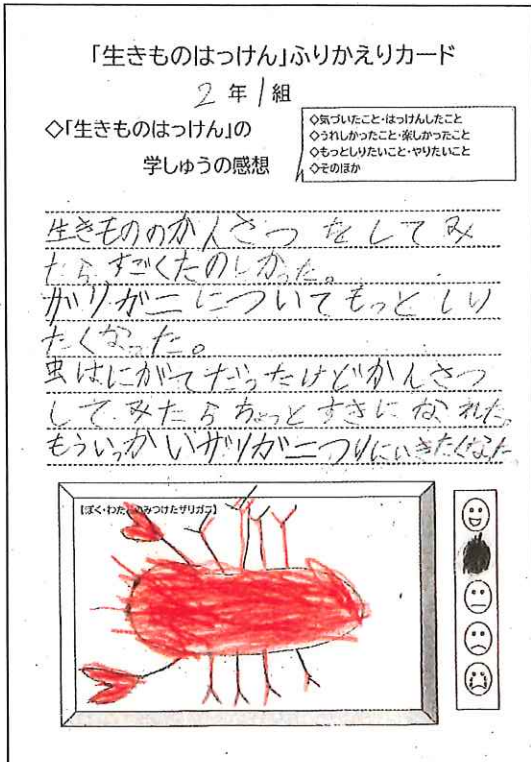 「生きものはっけん」ふりかえりカード
2年1組
◇「生きものはっけん」の
学しゅうの感想
◇気づいたこと・はっけんしたこと
◇うれしかったこと・楽しかったこと
◇もっとしりたいこと・やりたいこと
◇そのほか
生きもののかんさつをしてみ
たらすごくたのしかった。
ザリガニについてもっとしり
たくなった。
虫はにがてだったけどかんさつ
してみたらちょっとすきになれた。
もういっかいザリガニつりにいきたくなった
【ぼく・わたしのみつけたザリガニ】